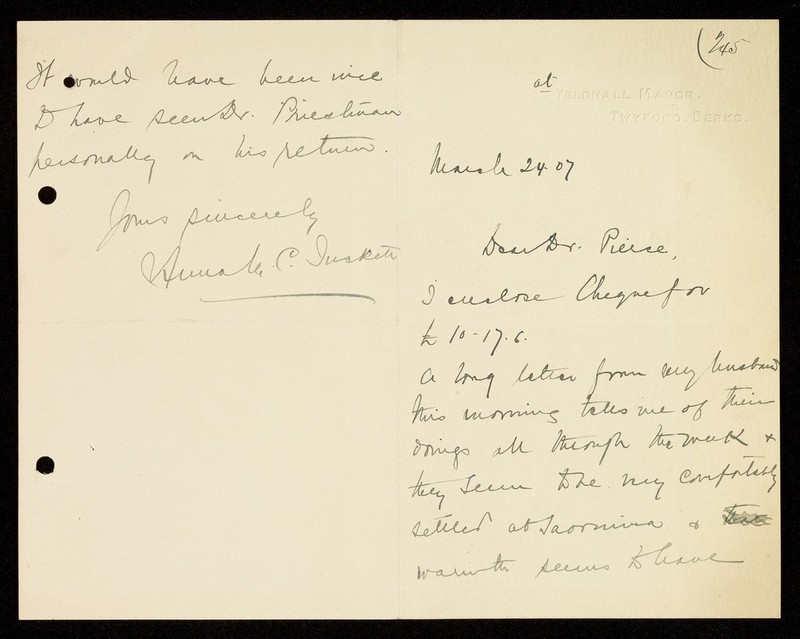 (245
at YELDHALL MANOR.
TWYFORD. BERKS.
March 24. 07
Dear Dr. Pierce,
I enclose Cheque for
£ 10-17.6.
A long letter from my husband
this morning tells me of their
doings all through the week &
they seem to be very comfortably
settled at Taormina &
warmth seems to have
It would have been nice
to have seen Dr. Priestman
personally on his return.
Yours sincerely
C.